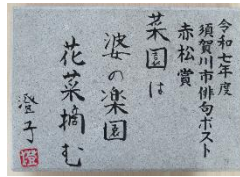 令和七年度
須賀川市俳句ポスト
赤松賞
菜園は
婆の楽園
花菜摘む
澄子